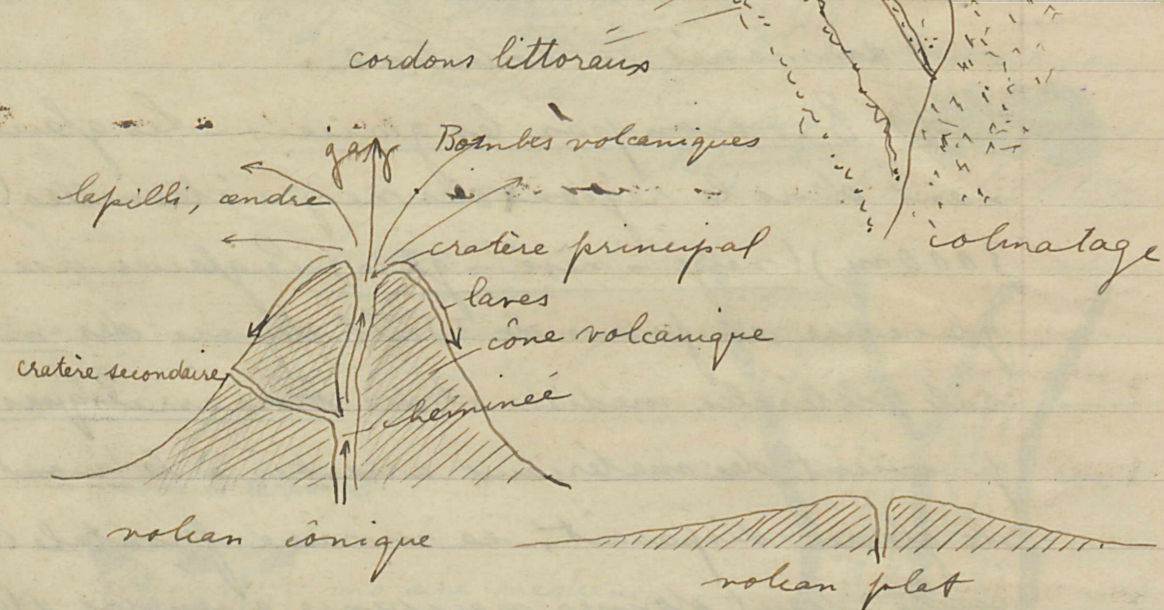 cordons littoraux
gaz
Bombes volcaniques
lapilli, cendre
cratère principal
colmatage
laves
cône volcanique
cratère secondaire
cheminée
volcan cônique
volcan plat